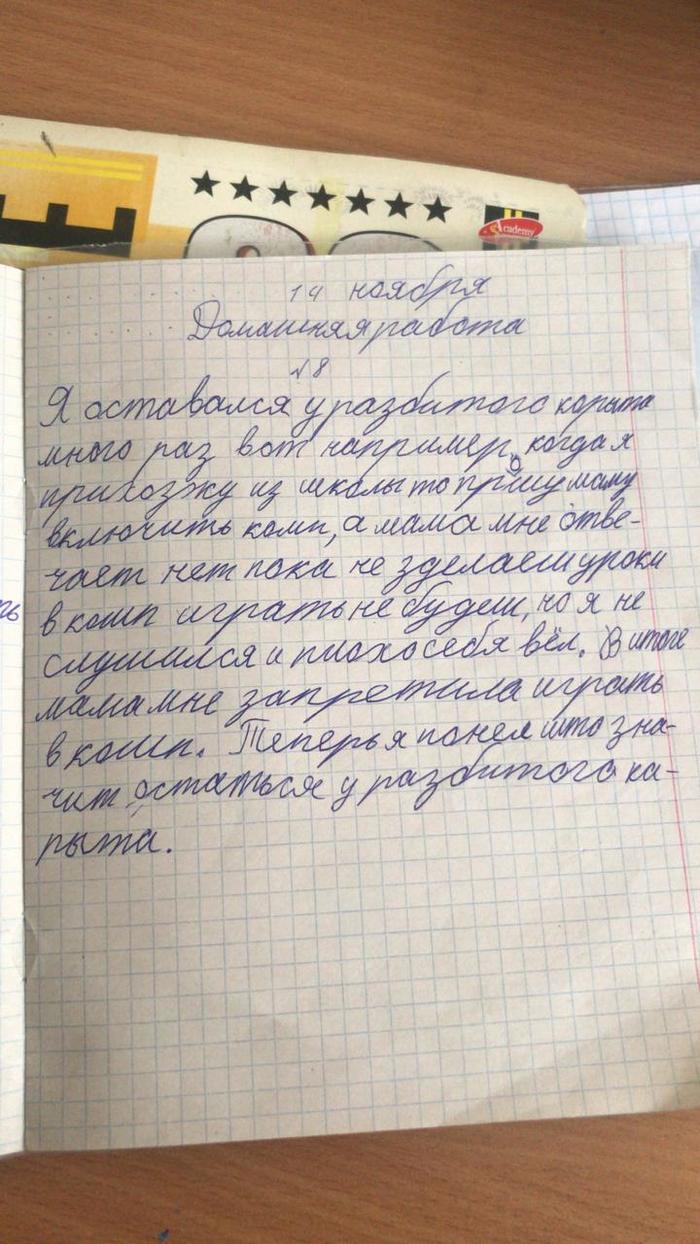 Academy
14 ноября
Домашняя работа
№8
Я оставался у разбитого корыта
много раз вот например, когда я
прихозжу из школы то прошу маму
включить комп, а мама мне отве-
чает нет пока не зделаеш уроки
в комп играть не будеш, но я не
слушился и плохо себя вёл. В итоге
мама мне запретила играть
в комп. Теперь я понел што зна-
чит остаться у разбитого ка-
рыта.
ть